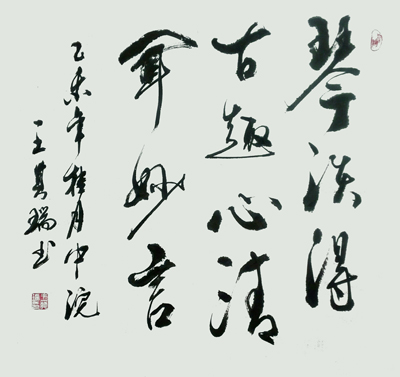 琴淡得
古趣心清
妙言
乙未年桂月中浣
王其瑞书